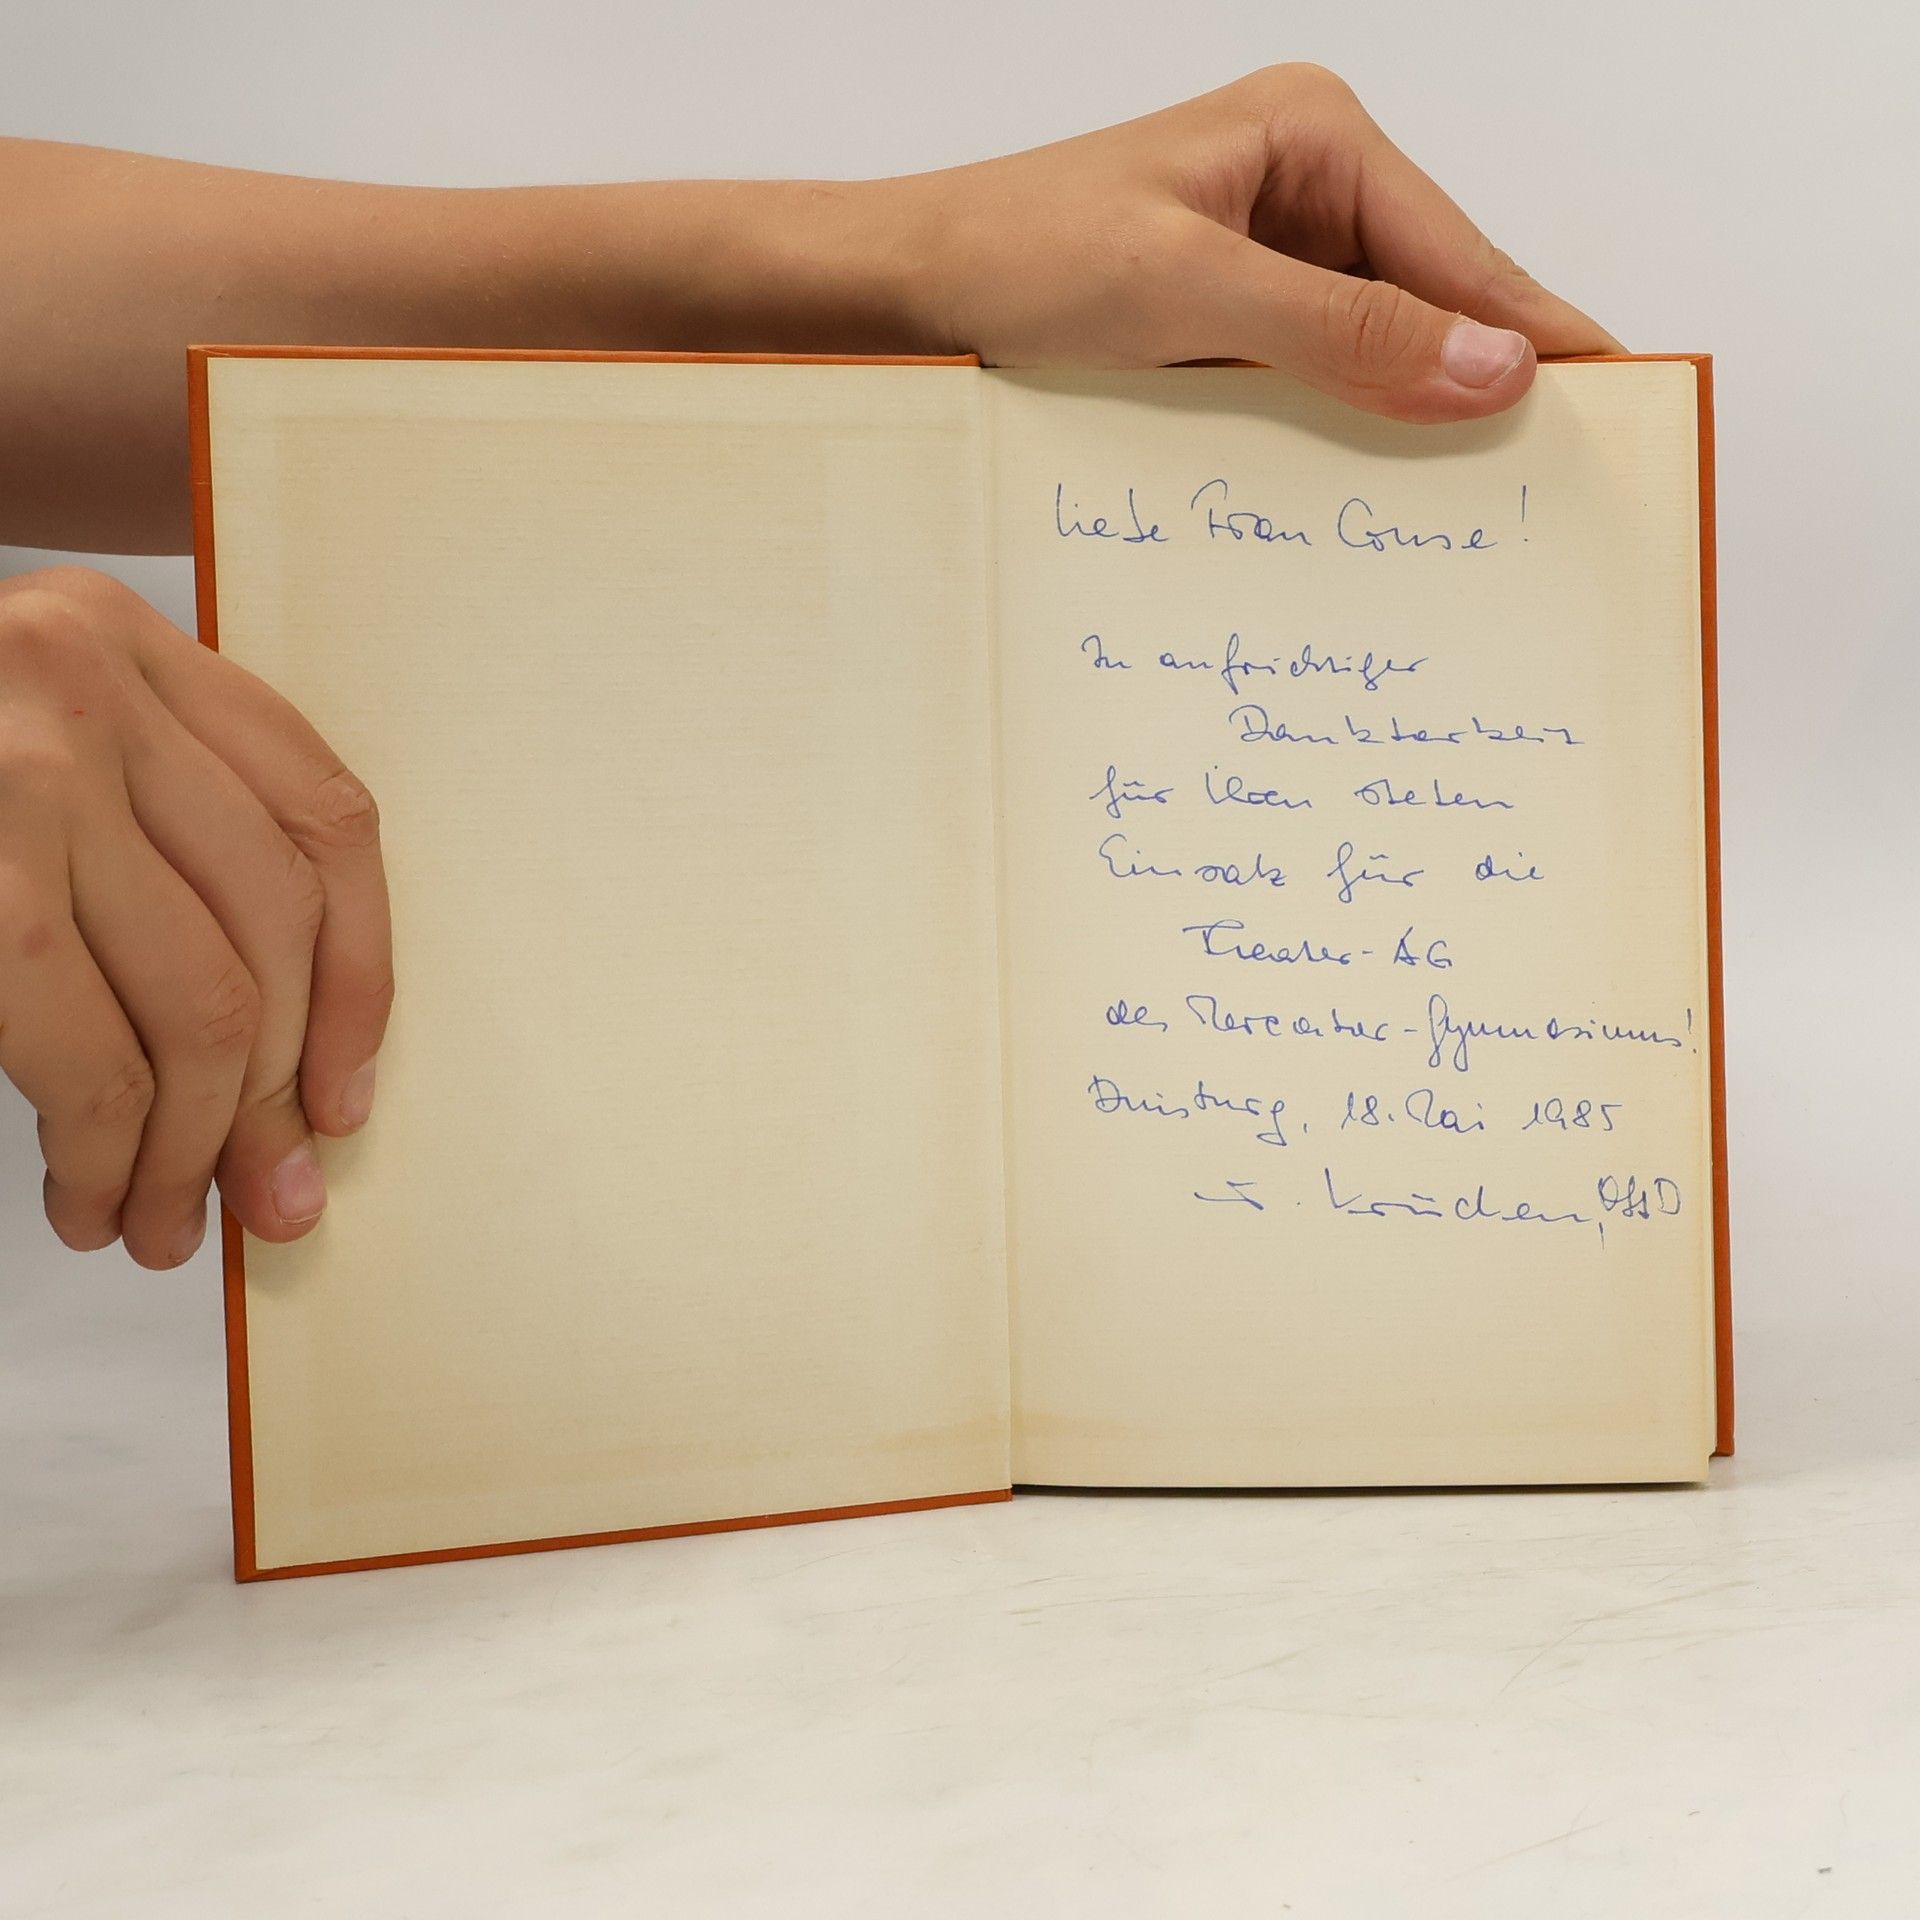 Liebe Frau Conse!
In aufrichtiger
Dankbarkeit
für Ihren steten
Einsatz für die
Theater-AG
des Mercator-Gymnasiums!
Duisburg, 18. Mai 1985
Krücken, OStD